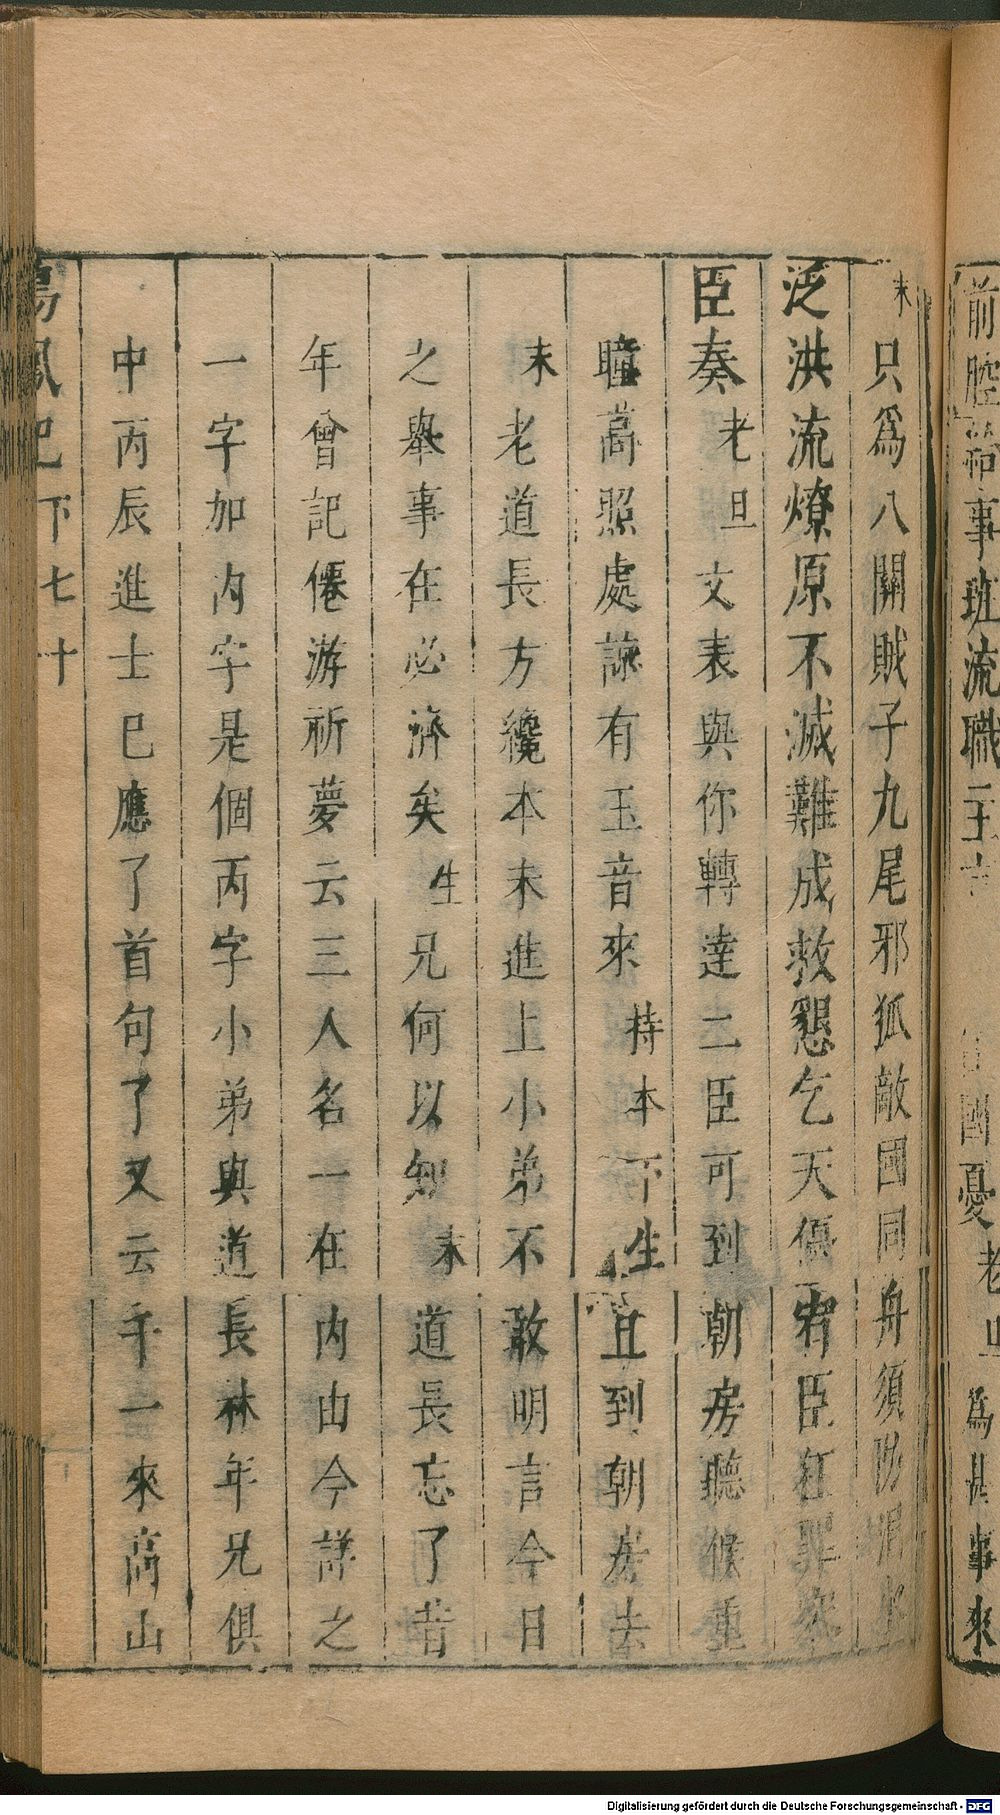 前腔 事班流職
國憂老旦爲甚事來
末只爲八關賊子九尾邪狐敵國同舟須防
泛洪流燎原不滅難成救懇乞天優宥臣
臣奏老旦文表與你轉達二臣可到朝房聽候重
瞳高照處諒有玉音來持本下生且到朝房去
末老道長方纔本末進上小弟不敢明言今日
之舉事在必濟矣生兄何以知末道長忘了昔
年曾記僊游祈夢云三人名一在内由今詳之
一字加内字是個丙字小弟與道長林年兄俱
中丙辰進士已應了首句了又云千一來高山
鳳記下七十
Digitalisierung gefördert durch die Deutsche Forschungsgemeinschaft - DFG